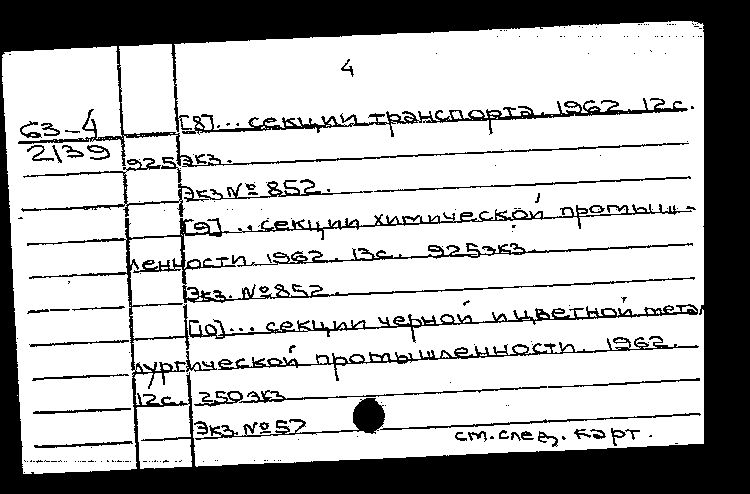 4
63-4
2139
[8]... секции транспорта. 1962. 12с.
925экз.
Экз № 852.
[9]... секции химической промыш-
ленности. 1962. 13с. 925экз.
Экз. № 852.
[10]... секции черной и цветной метал
лургической промышленности. 1962.
12с. 250экз
Экз. № 57
см.след. карт.